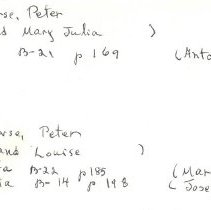 rse, Peter
d Mary Julia )
B-21 p 169 (Anto
rse, Peter
and Louise )
a B-22 p 185 (Mar
ia B-14 p 198 (Jose